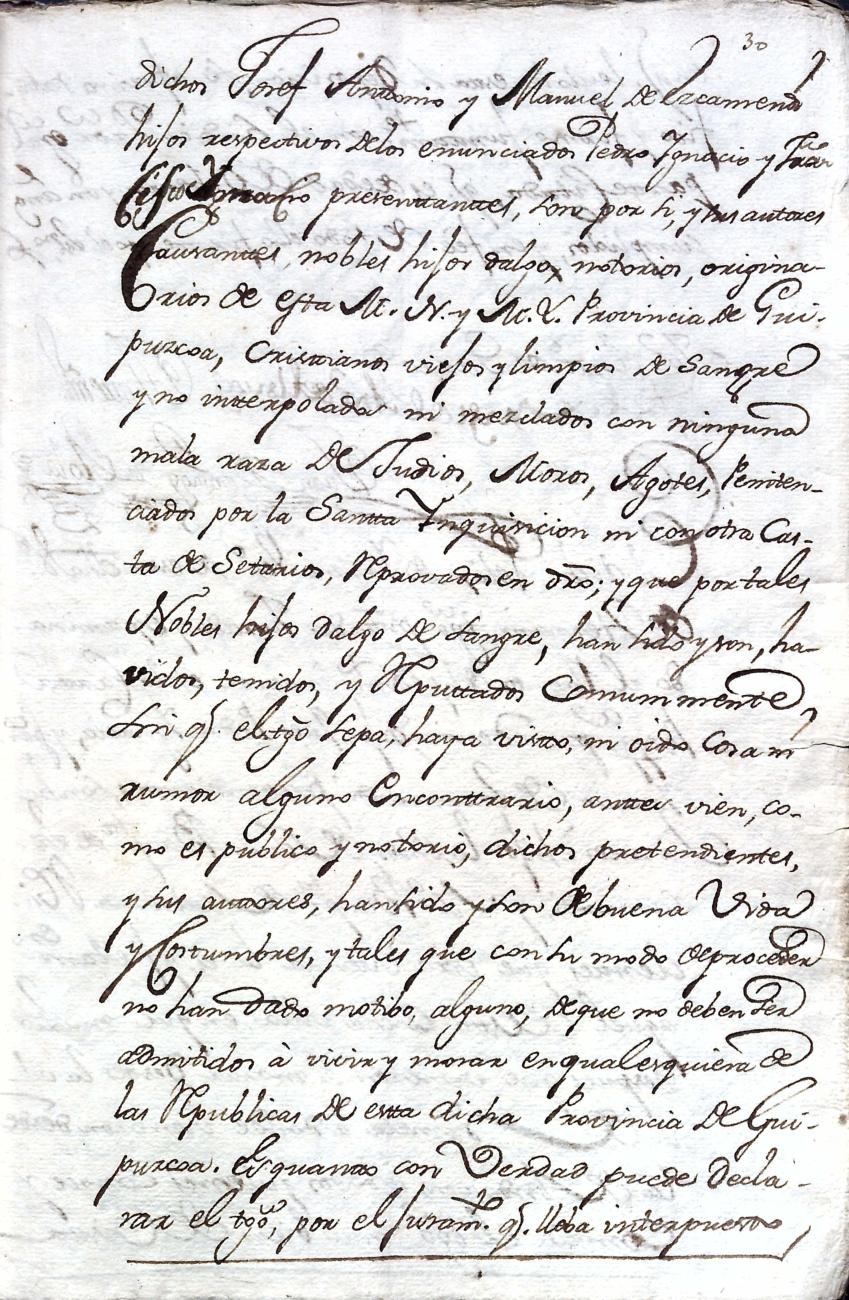 30
dichos Josef Antonio y Manuel de Lecamend
hijos respectivos delos enunciados Pedro Ignacio y Fran
Ignacio presenttanttes, son por si, y sus autores
Causanttes, nobles hijos dalgo, notorios, origina-
rios de esta M. N. y M. L. Provincia de Gui-
puzcoa, Cristianos viejos y limpios de Sangre
y no intterpolados ni mezclados con ninguna
mala raza de Judios, Moros, Agotes, Peniten-
ciados por la Santta Inquisicion ni con otra Cas-
ta de Setarios, Reprovados en dro; y que por tales
Nobles hijos dalgo de sangre, han sido y son, ha-
vidos, tenidos, y Reputtados Comunmente,
sin q. el tgo sepa, haya vistto, ni oido Cosa ni
rumor alguno Enconttrario, anttes vien, co-
mo es publico y notorio, dichos pretendientes,
y sus auttores, han sido y son de buena Vida
y Costumbres, y tales que con su modo de proceder
no han dado motibo, alguno, de que no deben ser
admitidos à vivir y morar en qualesquiera de
las Republicas de estta dicha Provincia de Gui-
puzcoa. Es quantto con Verdad puede decla-
rar el tgo, por el Juram.to q. lleba interpuesto,